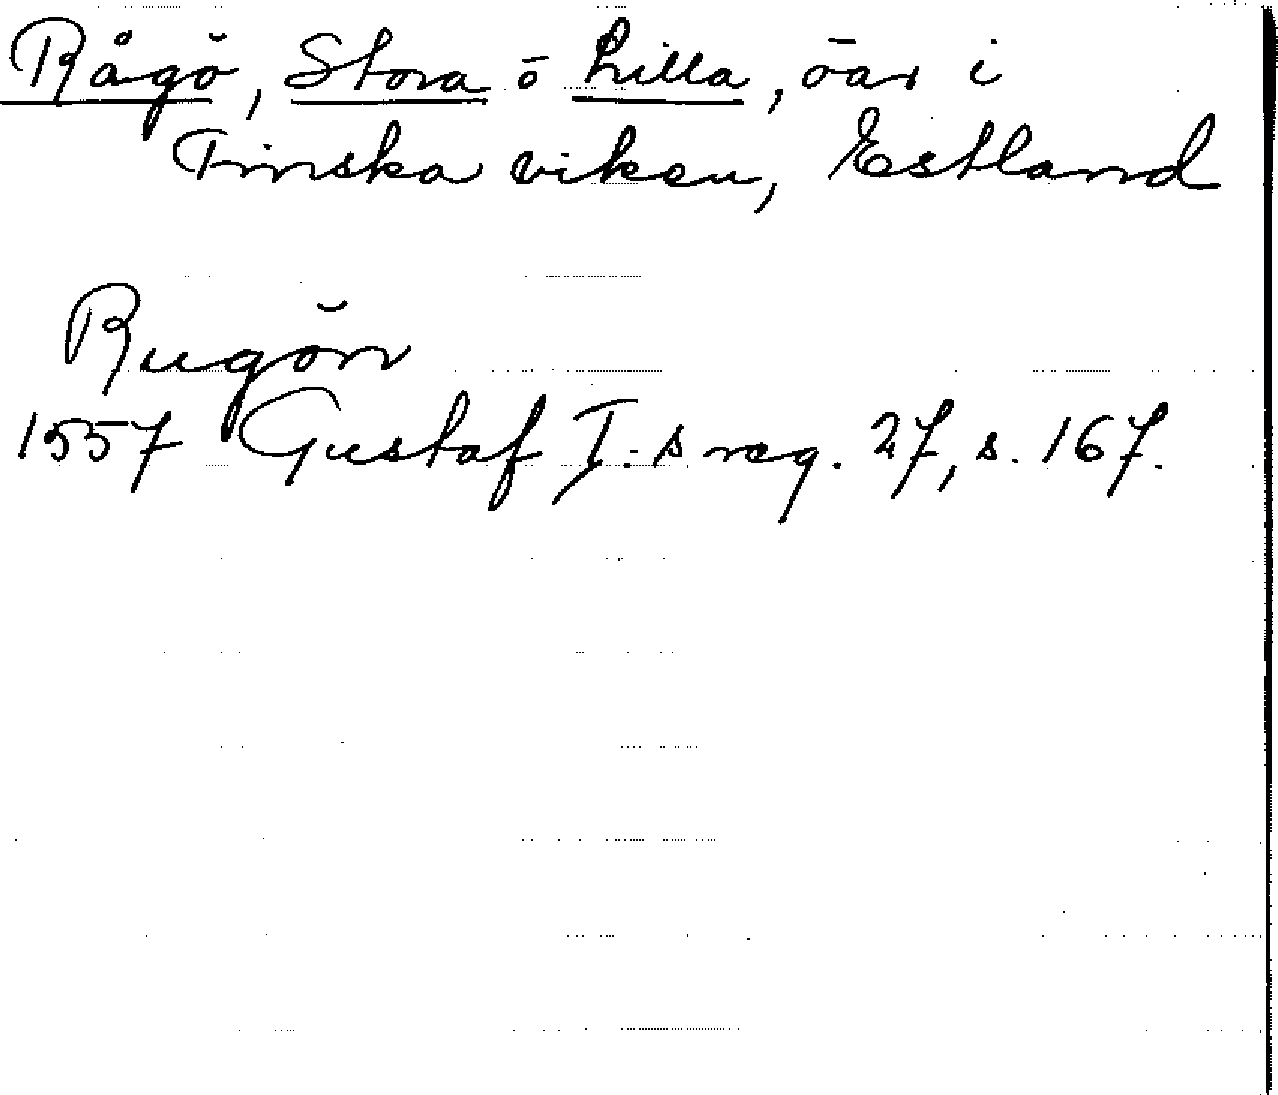 Rågö, Stora o Lilla, öar i
Finska viken, Estland
Rugön
1557 Gustaf I.s reg. 27, s. 167.